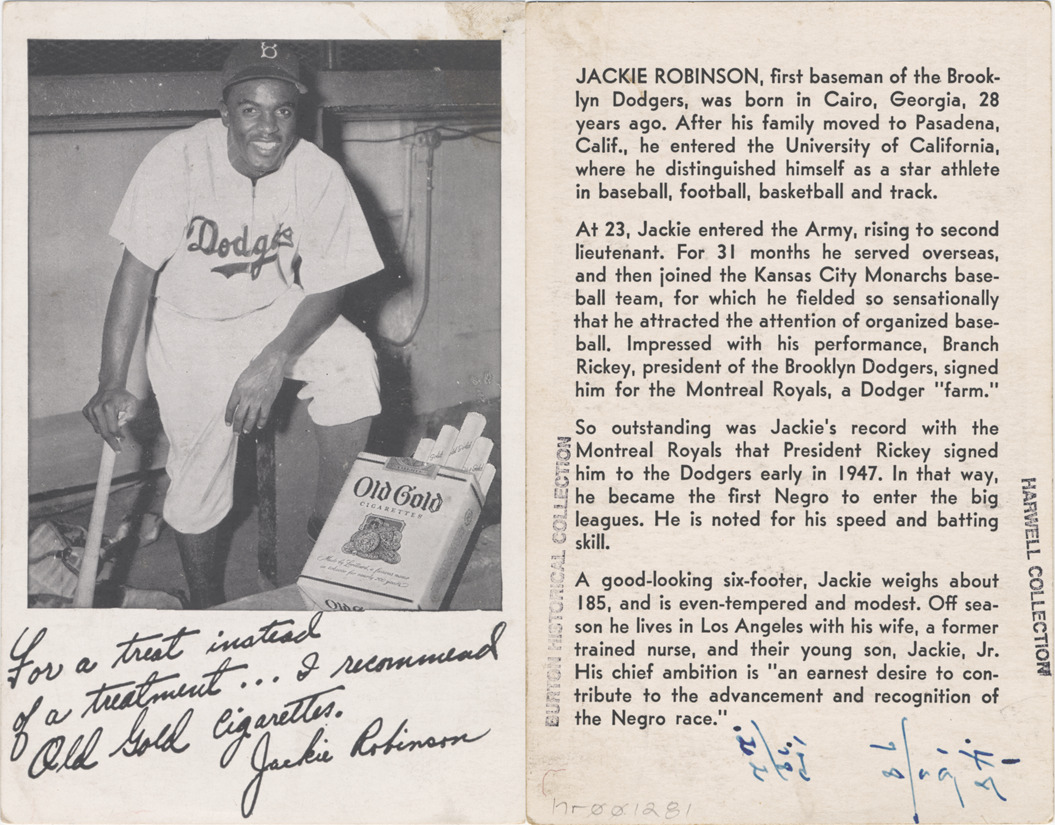 B
Dodgers
Old Gold
CIGARETTES
Old Gold
For a treat instead
of a treatment... I recommend
Old Gold Cigarettes.
Jackie Robinson
JACKIE ROBINSON, first baseman of the Brook-
lyn Dodgers, was born in Cairo, Georgia, 28
years ago. After his family moved to Pasadena,
Calif., he entered the University of California,
where he distinguished himself as a star athlete
in baseball, football, basketball and track.
At 23, Jackie entered the Army, rising to second
lieutenant. For 31 months he served overseas,
and then joined the Kansas City Monarchs base-
ball team, for which he fielded so sensationally
that he attracted the attention of organized base-
ball. Impressed with his performance, Branch
Rickey, president of the Brooklyn Dodgers, signed
him for the Montreal Royals, a Dodger "farm."
So outstanding was Jackie's record with the
Montreal Royals that President Rickey signed
him to the Dodgers early in 1947. In that way,
he became the first Negro to enter the big
leagues. He is noted for his speed and batting
skill.
A good-looking six-footer, Jackie weighs about
185, and is even-tempered and modest. Off sea-
son he lives in Los Angeles with his wife, a former
trained nurse, and their young son, Jackie, Jr.
His chief ambition is "an earnest desire to con-
tribute to the advancement and recognition of
the Negro race."
BURTON HISTORICAL COLLECTION
HARWELL COLLECTION
hr001281